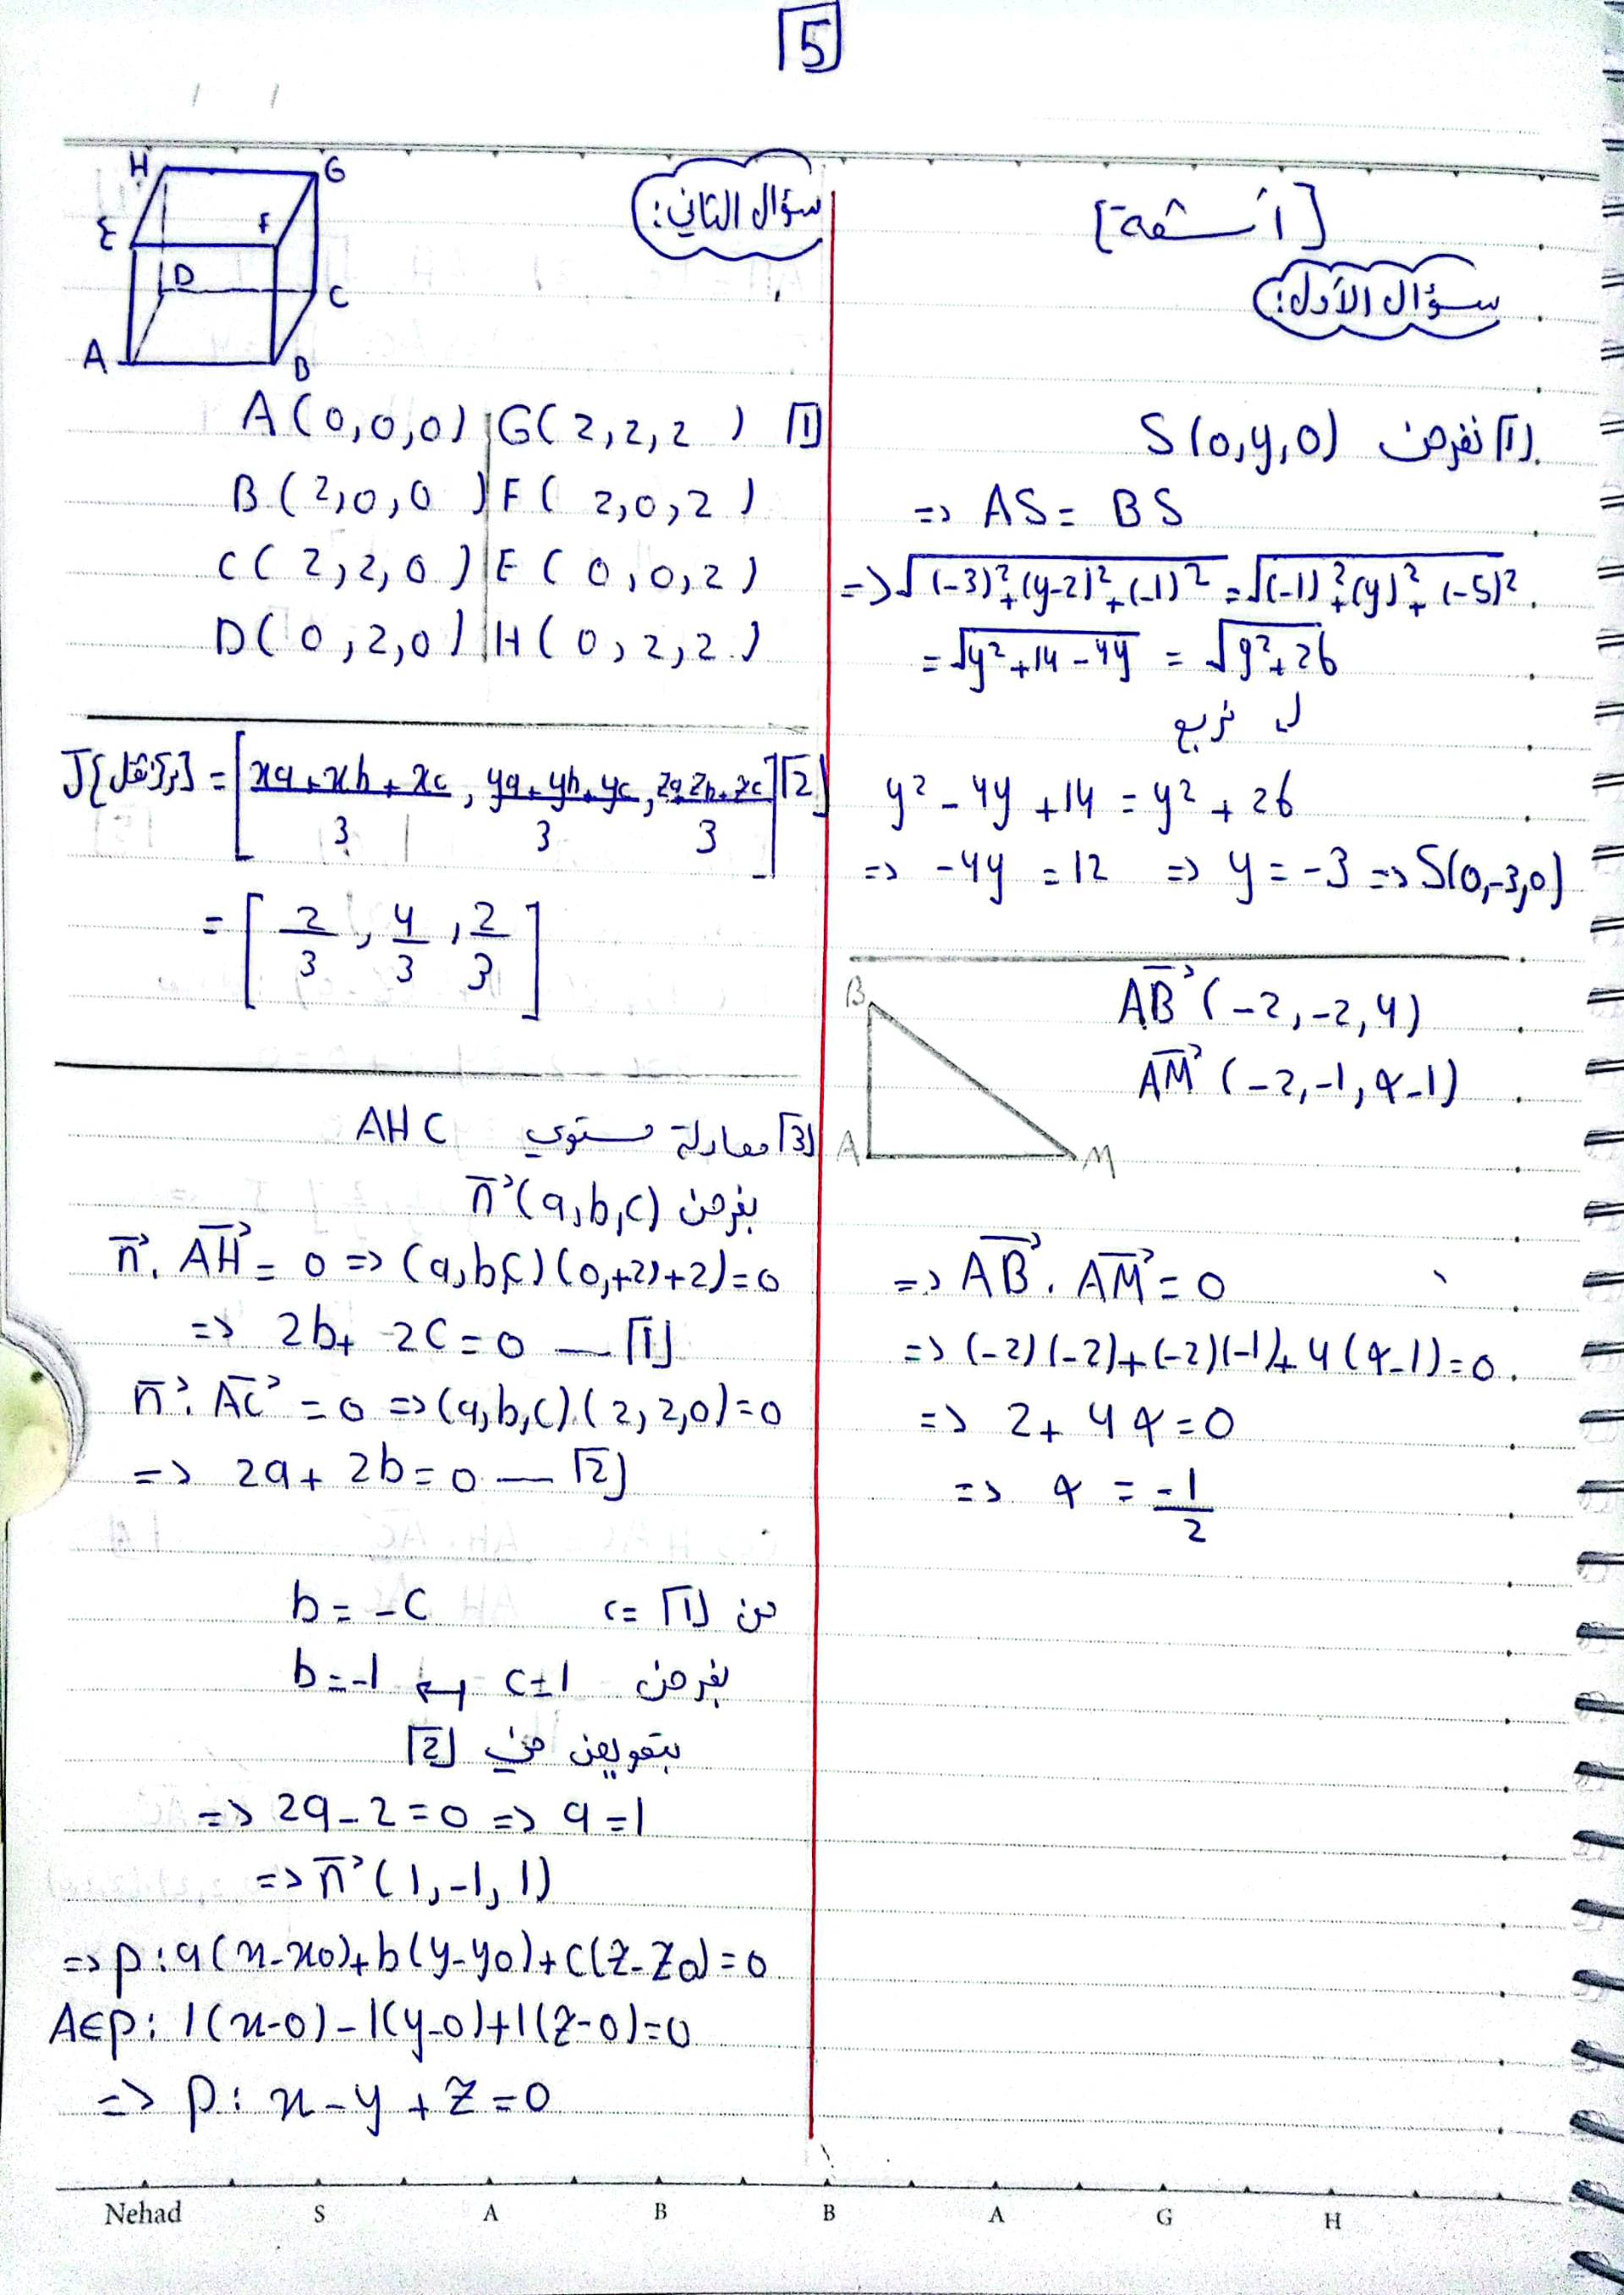 5
[أ سئمة]
سؤال الأول:
1 نفرض S(0,y,0)
=> AS = BS
=> √(-3)²+(y-2)²+(-1)² = √(-1)²+(y)²+(-5)²
= √y²+14-4y = √y²+26
نربع
y² - 4y + 14 = y² + 26
=> -4y = 12 => y = -3 => S(0,-3,0)
AB(-2,-2,4)
AM(-2,-1,α-1)
B
A
M
=> AB . AM = 0
=> (-2)(-2)+(-2)(-1)+4(α-1)=0
=> 2+ 4α=0
=> α = -1/2
سؤال الثاني:
H G
E F
D C
A B
1 A(0,0,0) | G(2,2,2)
B(2,0,0) | F(2,0,2)
C(2,2,0) | E(0,0,2)
D(0,2,0) | H(0,2,2)
2 J = [xa+xh+xc/3, ya+yh+yc/3, za+zh+zc/3]
= [2/3, 4/3, 2/3]
3 معادلة مستوي AHC
بفرض n(a,b,c)
n . AH = 0 => (a,b,c)(0,+2,+2)=0
=> 2b+ 2c=0 — 1
n . AC = 0 => (a,b,c).(2,2,0)=0
=> 2a+ 2b=0 — 2
من 1 => b = -c
بفرض c=1 ← b=-1
بتعويض في 2
=> 2a-2=0 => a=1
=> n(1,-1,1)
=> p: a(x-x0)+b(y-y0)+c(z-z0)=0
A∈p: 1(x-0)-1(y-0)+1(z-0)=0
=> p: x-y+z=0
Nehad S A B B A G H